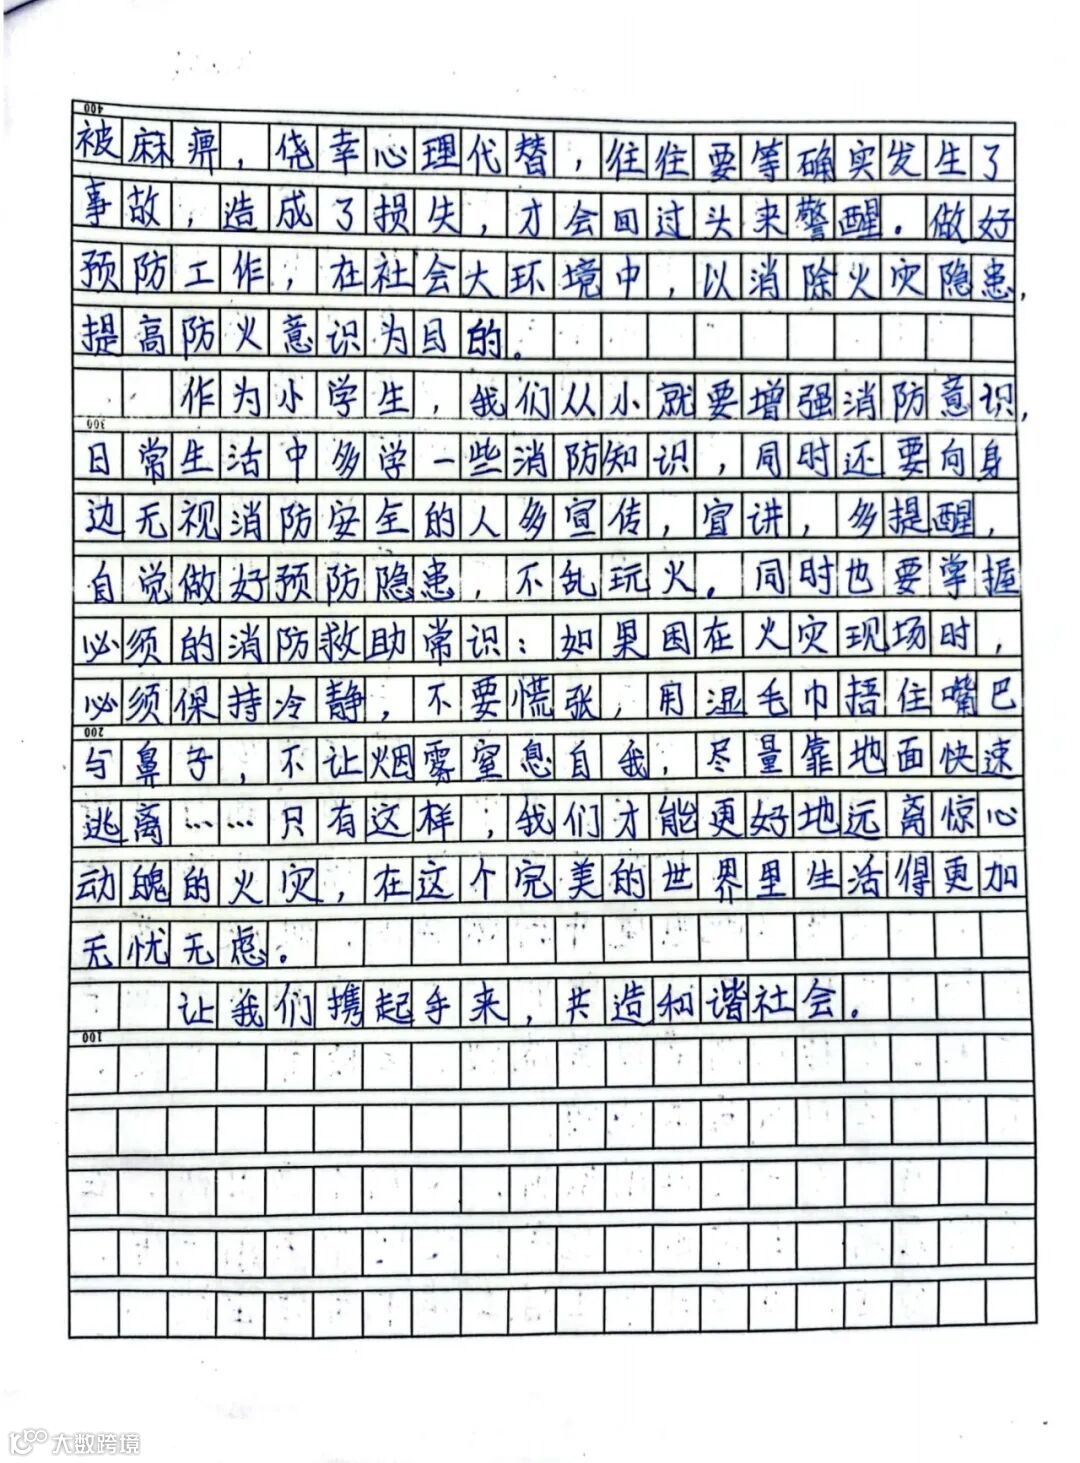 400
被麻痹，侥幸心理代替，往往要等确实发生了
事故，造成了损失，才会回过头来警醒。做好
预防工作，在社会大环境中，以消除火灾隐患，
提高防火意识为目的。
作为小学生，我们从小就要增强消防意识，
300
日常生活中多学一些消防知识，同时还要向身
边无视消防安全的人多宣传，宣讲，多提醒，
自觉做好预防隐患，不乱玩火。同时也要掌握
必须的消防救助常识：如果困在火灾现场时，
必须保持冷静，不要慌张，用湿毛巾捂住嘴巴
200
与鼻子，不让烟雾窒息自我，尽量靠地面快速
逃离……只有这样，我们才能更好地远离惊心
动魄的火灾，在这个完美的世界里生活得更加
无忧无虑。
让我们携起手来，共造和谐社会。
100
大数跨境